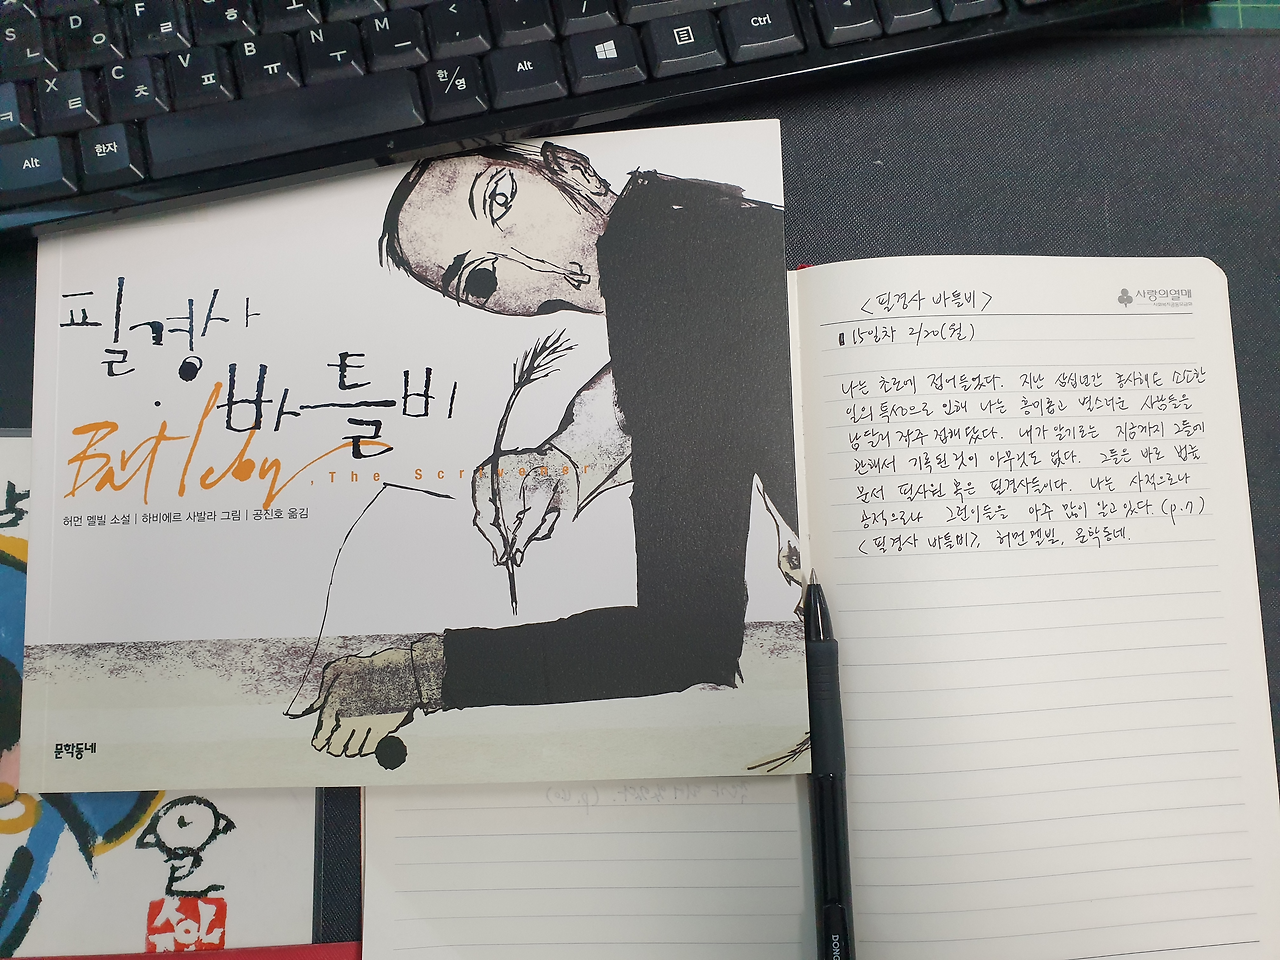 S ㄴ
D ㅇ
F ㄹ
G ㅎ
X ㅌ
C ㅊ
V ㅍ
B ㅠ
N ㅜ
M ㅡ
ㅋ
Alt
한자
한/영
Alt
Ctrl
필경사
바틀비
Bartleby
, The Scrivener
허먼 멜빌 소설 | 하비에르 사발라 그림 | 공진호 옮김
문학동네
사랑의열매
<필경사 바틀비>
15일차 2/20(월)
나는 초로에 접어들었다. 지난 삼십년간 종사해온 소소한
일의 특성으로 인해 나는 흥미롭고 별스러운 사람들을
남달리 자주 접해 왔다. 내가 알기로는 지금까지 그들에
관해서 기록된 것이 아무것도 없다. 그들은 바로 법률
문서 필사원 혹은 필경사들이다. 나는 사적으로나
공적으로나 그런이들을 아주 많이 알고 있다. (p.7)
<필경사 바틀비>, 허먼멜빌, 문학동네.
DONG